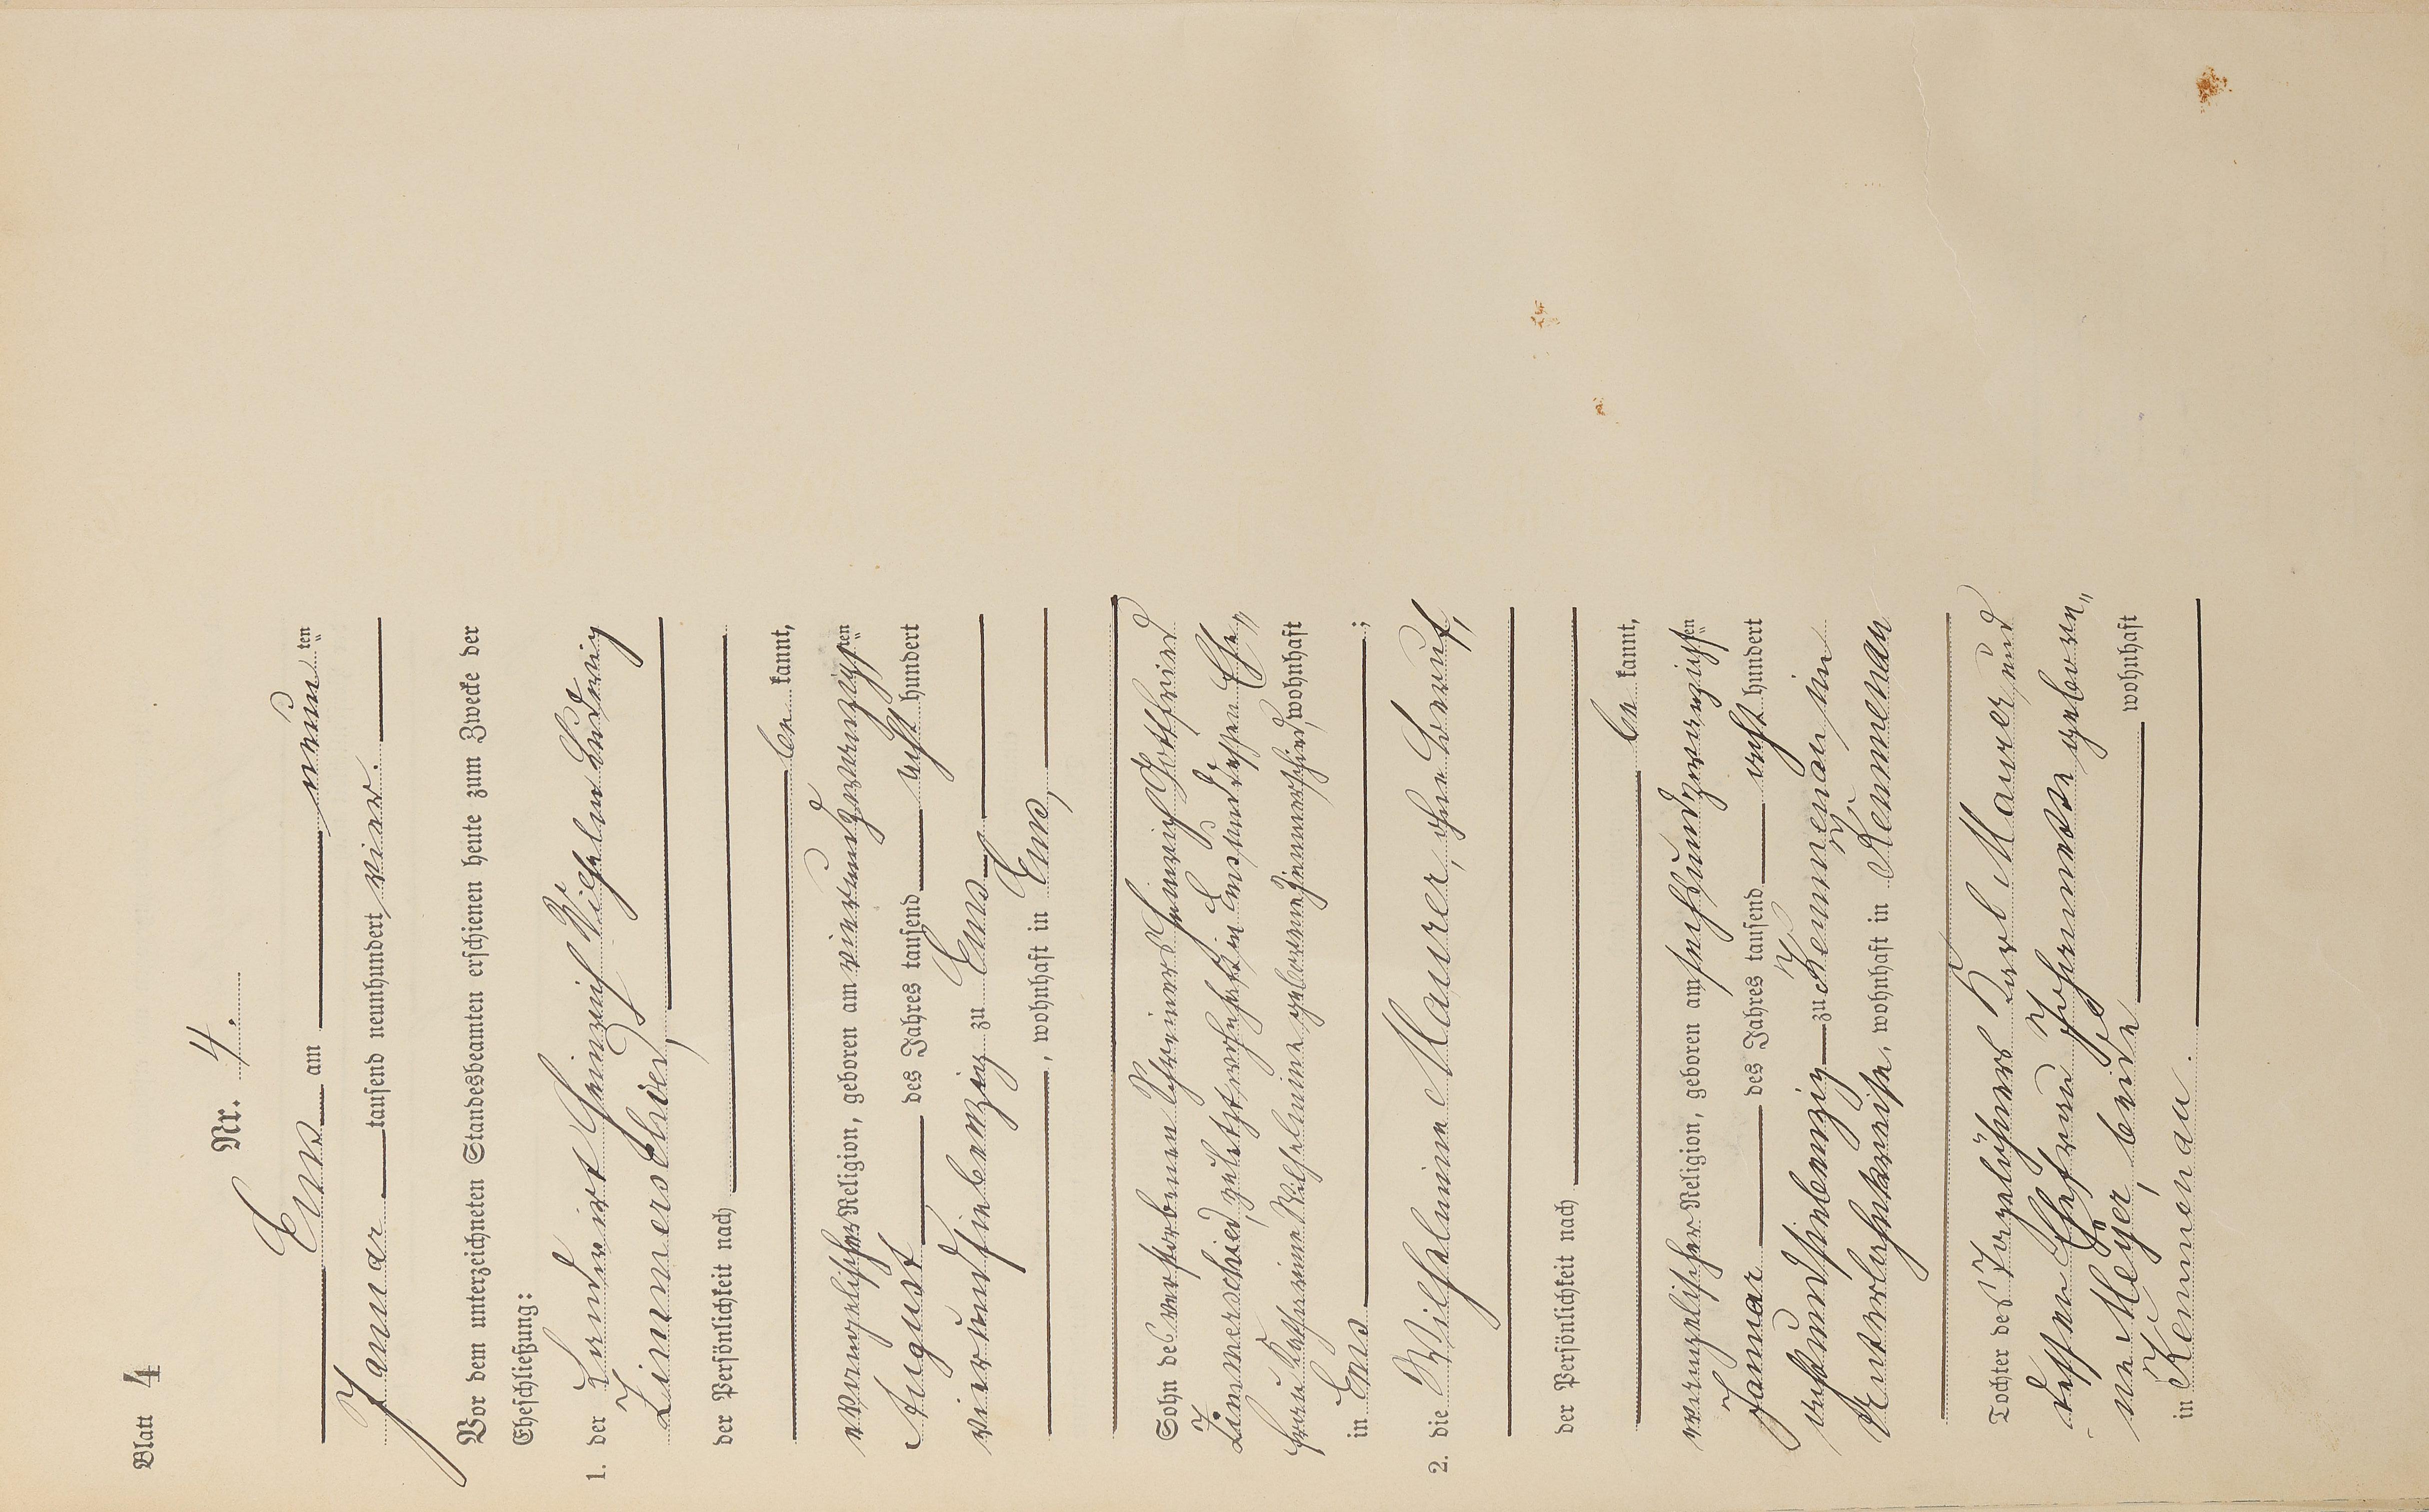 Blatt 4
Nr. 4.
Ems am neunten
Januar tausend neunhundert vier.
Vor dem unterzeichneten Standesbeamten erschienen heute zum Zwecke der
Eheschließung:
1. der Landwirt Heinrich Wilhelm Ludwig
Zimmerschied,
der Persönlichkeit nach
be kannt,
evangelischer Religion, geboren am vierundzwanzigsten
August des Jahres tausend acht hundert
vierundsiebenzig zu Ems
, wohnhaft in Ems,
Sohn des verstorbenen Schreiners Heinrich Gottfried
Zimmerschied, zuletzt wohnhaft in Ems und dessen Ehe„
frau Katharina Wilhelmine geborene Zimmerschied, wohnhaft
in Ems ;
2. die Wilhelmine Maurer, ohne Beruf,
der Persönlichkeit nach
be kannt,
evangelischer Religion, geboren am sechsundzwanzigsten
Januar des Jahres tausend acht hundert
achtundsiebenzig zu Kemmenau im
Unterlahnkreise, wohnhaft in Kemmenau
Tochter des Tagelöhners Karl Maurer und
dessen Ehefrau Johannette gebore„
ne Meyer, beide wohnhaft
in Kemmenau.